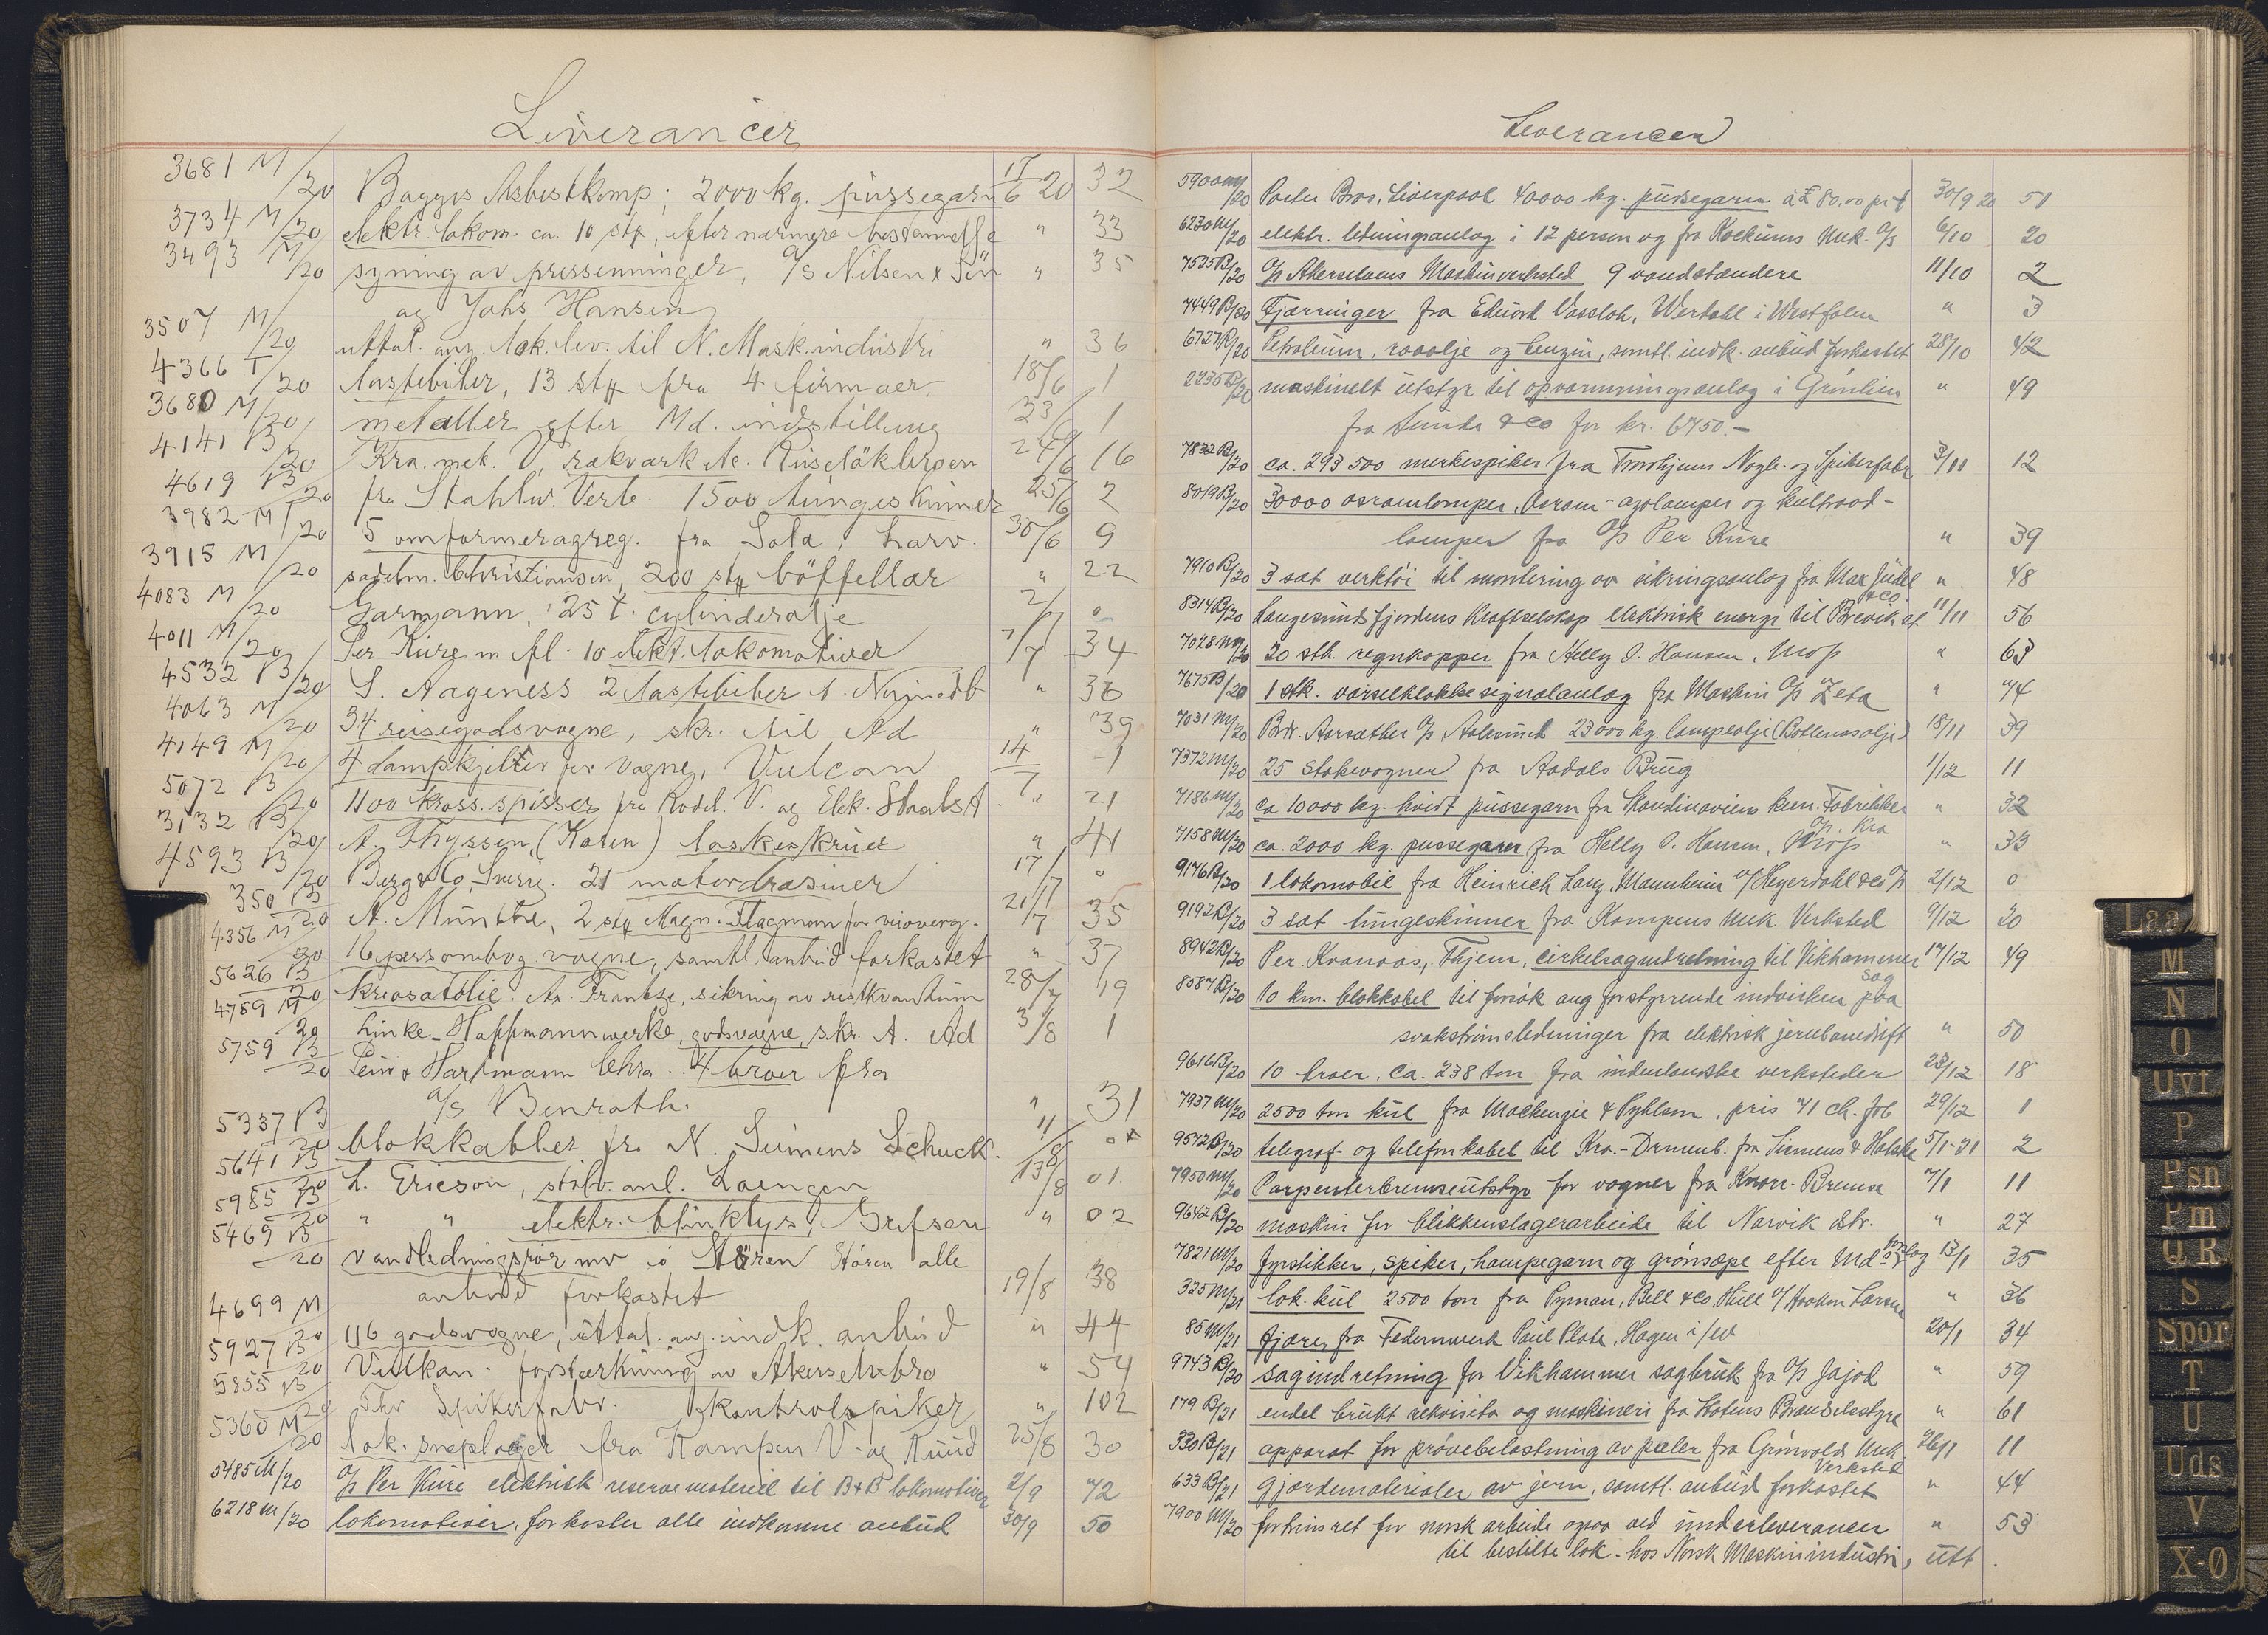 Leverancer
3681 M/20 Bagges Asbestkomp; 2000 kg. pussegarn 17/6 20 32
3734 M/20 elektr. lokom. ca. 10 stk, efter nærmere bestemmelse " 33
3493 M/20 syning av pressenninger, A/S Nilsen & Sön " 35
og Johs Hansen
3507 M/20 uttal. ang. lok. lev. til N. Mask.industri " 36
4366 T/20 lastebiler, 13 stk fra 4 firmaer 18/6 1
3680 M/20 metaller efter Md. indstilling 23/6 1
4141 B/20 Kra. mek. V, rækverk Ruselökbroen 24/6 16
4619 B/20 fra Stahlw. Verb. 1500 tungeskinner 25/6 2
3982 M/20 5 omformeragreg. fra Sola, Larv. 30/6 9
3915 M/20 sadelm. Christiansen, 200 stk böffellær " 22
4083 M/20 Garmann, 25 t. cylinderolje 2/7 0
4011 M/20 Per Kure m fl. 10 elekt. lokomotiver 7/7 34
4532 B/20 S. Aageness 2 lastebiler " 36
4063 M/20 34 reisegodsvogne, skr. til Ad " 39
4149 M/20 4 dampkjeler for vogne, Vulcan 14/7 1
5072 B/20 1100 kross. spisser fra Kodel. V. og Elek. Staalst. " 21
3132 B/20 A. Thyssen, (Koren) laskeskruer " 41
4593 B/20 Berg & Co, Sverig. 21 motordrasiner 17/7 0
350 B/20 A. Munthe, 2 stk Magn. Flagman for veioverg. 21/7 35
4356 M/20 16 personbog.vogne, samtl. anbud forkastet " 37
5626 B/20 kreosotolie. Ax. Frantze, sikring av restkvantum 28/7 19
4759 M/20 Linke-Hoffmannwerke, godsvogne, skr. A. Ad 3/8 1
5759 B/20 Pein & Hartmann Chra. 4 broer fra
A/S Benrath. " 31
5337 B/20 blokkabler fra N. Siemens Schuck. 11/8 0
5641 B/20 L. Ericson, stilv. anl. Loengen 13/8 01
5985 B/20 " " elektr. blinklys, Grefsen " 02
5469 B/20 vandledningsrör mv i Stören Stören alle
anbud forkastet 19/8 38
4699 M/20 116 godsvogne, uttal. ang. indk. anbud " 44
5927 B/20 Vulkan. forstærkning av Akerselvbro " 54
5855 B/20 Thr Spikerfabr. kontrolspiker " 102
5360 M/20 lok. sneploger fra Kampen V. og Ruud 25/8 30
5485 M/20 A/S Per Kure elektrisk reservemateriel til B+B lokomotiver 2/9 42
6218 M/20 lokomotiver, forkaster alle indkomne anbud 30/9 50
Leverancer
5900 M/20 Porter Bros, Liverpool 40000 kg. pudsegarn à £ 80.00 pr t 30/9 20 51
6230 M/20 elektr. ledningsanlæg i 12 person vog fra Kockums Mek. A/S 6/10 20
7525 B/20 A/S Akerselvens Maskinverksted 9 vandstændere 11/10 2
7449 B/20 Fjærringer fra Eduard Vossloh, Werdohl i Westfalen " 3
6727 R/20 Petroleum, raaolje og benzin, samtl. indk. anbud forkastet 28/10 42
2235 B/20 maskinelt utstyr til opvarmningsanlæg i Grönlien " 49
fra Sunde & Co for kr. 6450.-
7832 B/20 ca. 293 500 merkespiker fra Trondhjems Nagle- og Spikerfabr 3/11 12
8019 B/20 30000 osramlamper, Osram-azolamper og kultraad-
lamper fra A/S Per Kure " 39
7910 B/20 3 sæt verktöi til montering av sikringsanlæg fra Max Jüdel & Co " 48
8314 B/20 Langesundsfjordens Kraftselskap elektrisk energi til Brevik st 11/11 56
7028 M/20 20 stk. regnkapper fra Helly J. Hansen, Moss " 63
7675 B/20 1 stk. varselklokkesignalanlæg fra Maskin A/S Zeta " 74
7031 M/20 Brdr. Aarsæther A/S Aalesund 23000 kg. lampeolje (Bottlenosolje) 18/11 39
7372 M/20 25 stakevogner fra Aadals Brug 1/12 11
7186 M/20 ca 10000 kg. hvidt pussegarn fra Skandinaviens kem. Fabrikker A/S. Kra " 32
7158 M/20 ca. 2000 kg. pussegarn fra Helly J. Hansen, Moss " 33
9176 B/20 1 lokomobil fra Heinrich Lanz, Mannheim v/ Heyerdahl & Co A/S 2/12 0
9192 B/20 3 sæt tungeskinner fra Kampens Mek Verksted 9/12 20
8942 B/20 Per Kvanaas, Thjem, cirkelsagindretning til Vikhammer sag 14/12 49
8587 B/20 10 km. blokkabel til forsök ang forstyrrende indvirken paa
svakströmsledninger fra elektrisk jernbanedrift " 50
9616 B/20 10 broer, ca. 238 ton fra indenlandske verksteder 23/12 18
7937 M/20 2500 ton kul fra Mackenzie & Pyhlson, pris 71 ch. fob 29/12 1
9542 B/20 telegraf- og telefonkabel til Kra.-Drmenb. fra Siemens & Halske 5/1-21 2
7950 M/20 Carpenterbremseutstyr for vogner fra Knorr-Bremse 7/1 11
9642 B/20 maskin for blikkenslagerarbeide til Narvik str. " 27
7821 M/20 fyrstikker, spiker, hampegarn og grönsæpe efter Md's forslag 13/1 35
325 M/21 lok. kul 2500 ton fra Pyman, Bell & Co, Hull v/ Haakon Larsen " 36
85 M/21 fjærer fra Federnwerk Paul Plate, Hagen i/w 20/1 34
9743 B/20 sagindretning for Vikhammer sagbruk fra A/S Jajod " 59
179 B/21 endel brukt rekvisita og maskineri fra Statens Brændselsstyre " 61
330 B/21 apparat for prövebelastning av pæler fra Grönvolds Mek. Verksted 26/1 11
633 B/21 gjærdematerialer av jern, samtl. anbud forkastet " 44
7900 M/20 fortrinsret for norsk arbeide ogsaa ved underleverancer " 53
til bestilte lok. hos Norsk Maskinindustri, utt.
Laa
M
N
O
Uvf
P
Psn
Pm
Q R
S
Spor
T
U
Uds
V
X-Ø